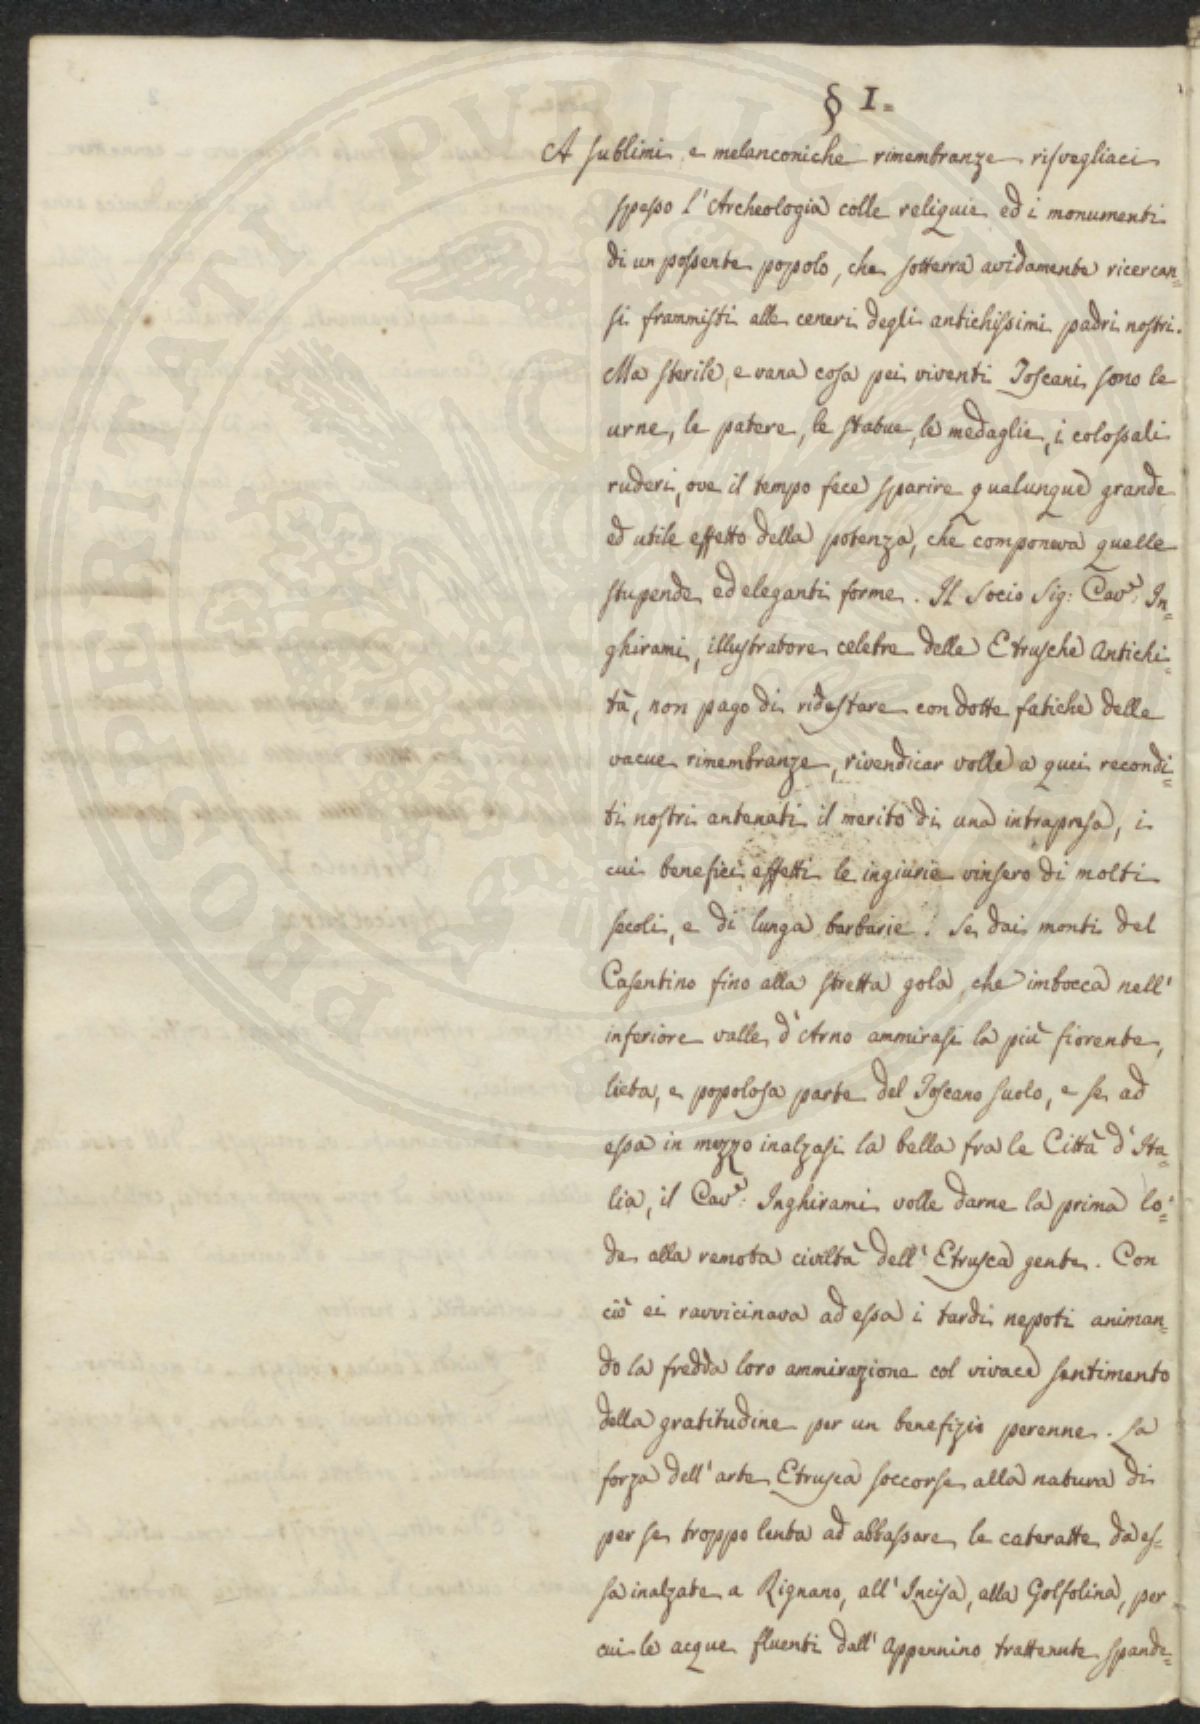 § I.
A sublimi e melanconiche rimembranze risvegliaci
spesso l'Archeologia colle reliquie ed i monumenti
di un possente popolo, che sotterra avidamente ricercan=
si frammisti alle ceneri degli antichissimi padri nostri.
Ma sterile, e vana cosa pei viventi Toscani sono le
urne, le patere, le statue, le medaglie, i colossali
ruderi, ove il tempo fece sparire qualunque grande
ed utile effetto della potenza, che componeva quelle
stupende ed eleganti forme. Il Socio Sig: Cav.e In=
ghirami, illustratore celebre delle Etrusche Antichi=
tà, non pago di ridestare con dotte fatiche delle
vacue rimembranze, rivendicar volle a quei recondi=
ti nostri antenati il merito di una intrapresa, i
cui benefici effetti le ingiurie vinsero di molti
secoli, e di lunga barbarie. Se dai monti del
Casentino fino alla stretta gola, che imbocca nell'
inferiore valle d'Arno ammirasi la più fiorente,
lieta, e popolosa parte del Toscano suolo, e se ad
essa in mezzo inalzasi la bella fra le Città d'Ita=
lia, il Cav.e Inghirami volle darne la prima lo=
de alla remota civiltà dell'Etrusca gente. Con
ciò ei ravvicinava ad essa i tardi nepoti animan=
do la fredda loro ammirazione col vivace sentimento
della gratitudine per un benefizio perenne. La
forza dell'arte Etrusca soccorse alla natura di
per se troppo lenta ad abbassare le cateratte da es=
sa inalzate a Rignano, all'Incisa, alla Golfolina, per
cui le acque fluenti dall'Appennino trattenute spande=
PROSPERITATI PUBLICAE